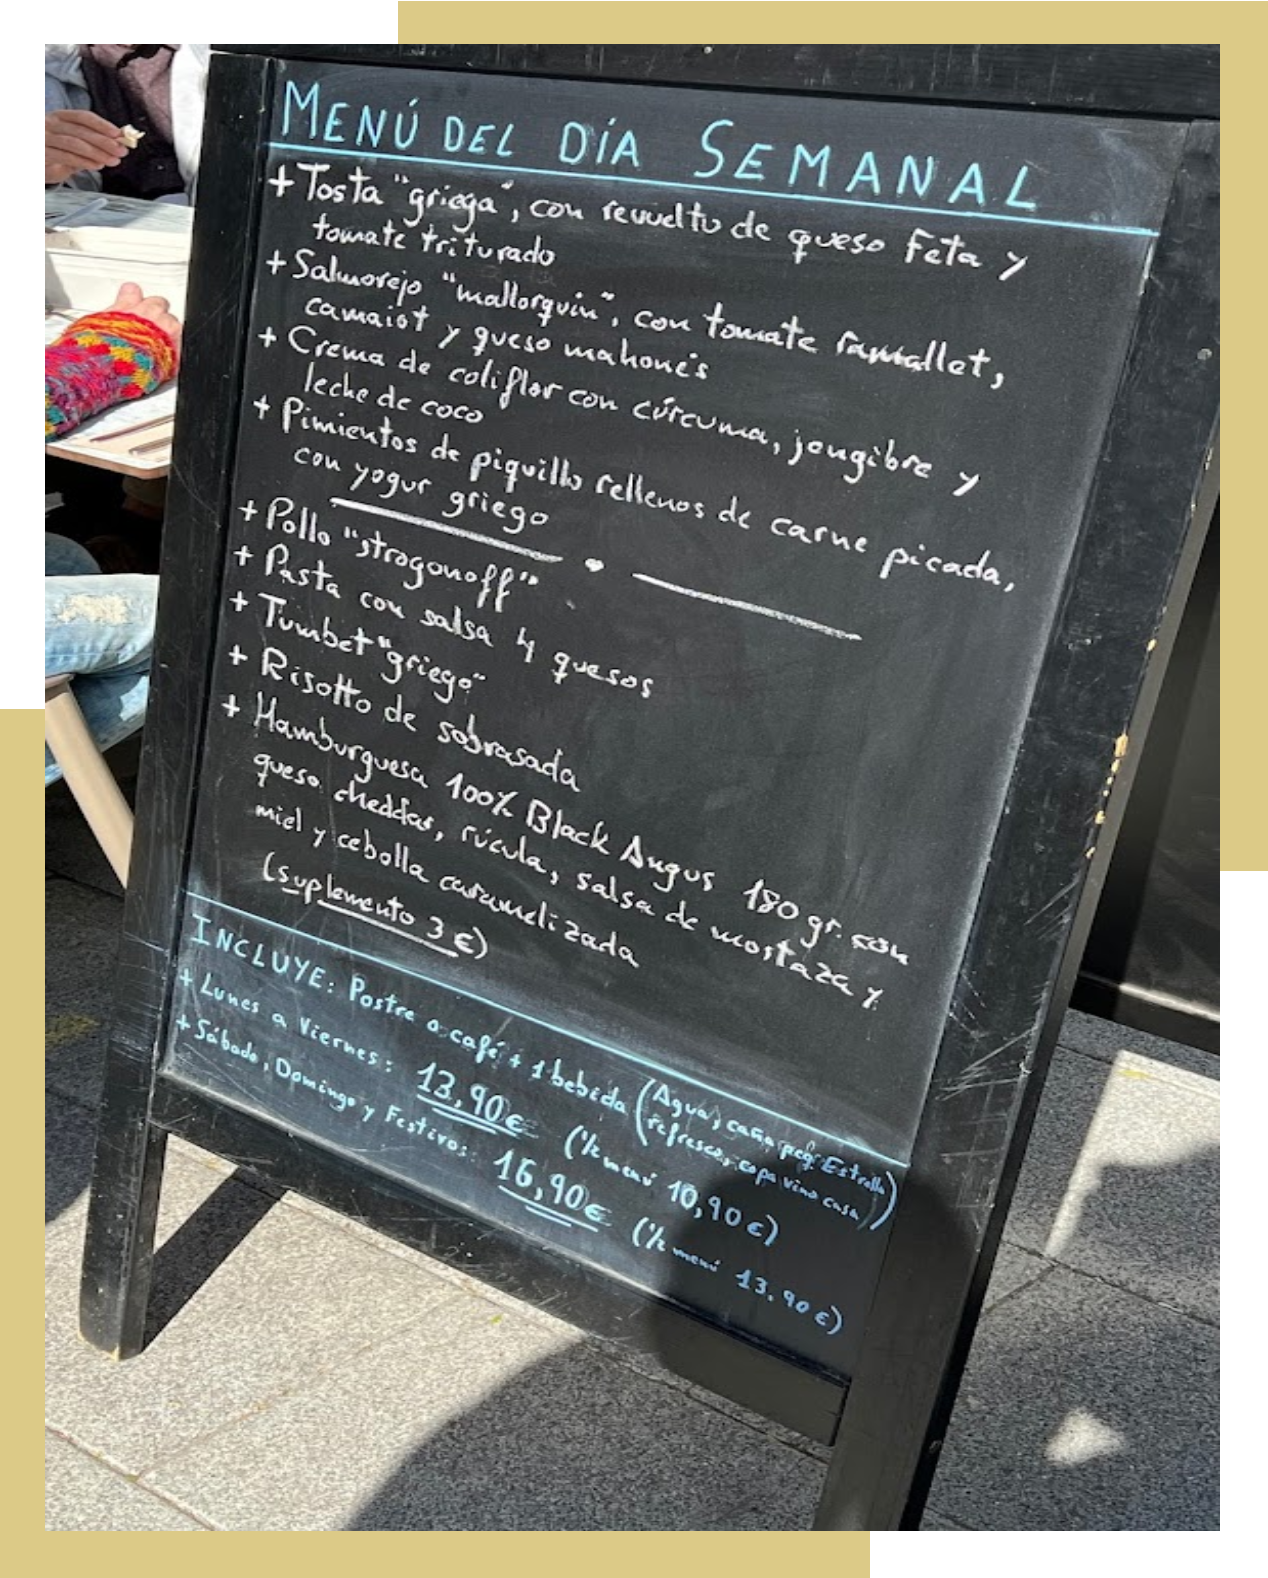 MENÚ DEL DÍA SEMANAL
+ Tosta "griega", con revuelto de queso Feta y
tomate triturado
+ Salmorejo "mallorquin", con tomate ramallet,
camaiot y queso mahonés
+ Crema de coliflor con cúrcuma, jengibre y
leche de coco
+ Pimientos de piquillo rellenos de carne picada,
con yogur griego
+ Pollo "strogonoff"
+ Pasta con salsa 4 quesos
+ Tumbet "griego"
+ Risotto de sobrasada
+ Hamburguesa 100% Black Angus 180 gr. con
queso cheddar, rúcula, salsa de mostaza y
miel y cebolla caramelizada
(suplemento 3 €)
INCLUYE: Postre o café + 1 bebida (Agua, caña peq. Estrella
refresco, copa vino casa)
+ Lunes a Viernes: 13,90€ (1/2 menú 10,90€)
+ Sábado, Domingo y Festivos: 16,90€ (1/2 menú 13,90€)